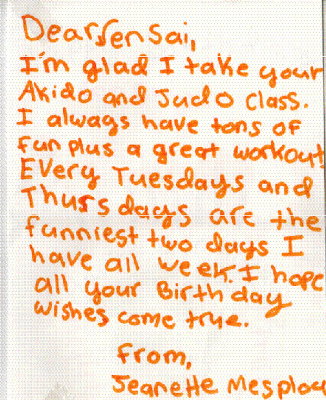 Dear Sensai,
I'm glad I take your
Akido and Judo Class.
I always have tons of
fun plus a great workout
Every Tuesdays and
Thursdays are the
funniest two days I
have all week. I hope
all your Birthday
wishes come true.
From,
Jeanette Mesplou